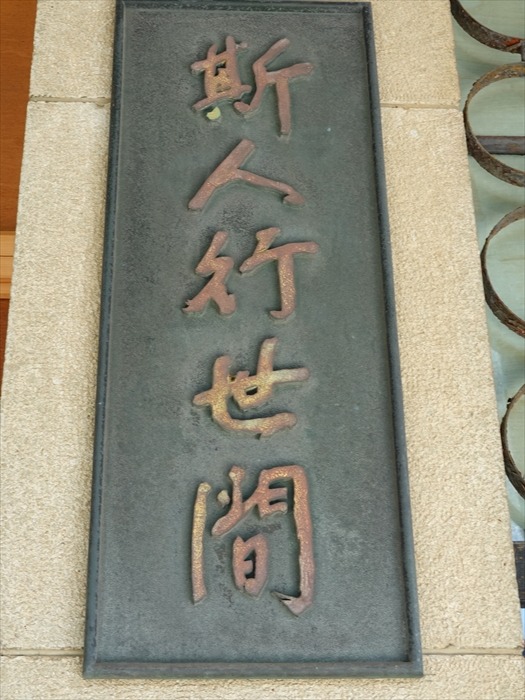 斯人行世間